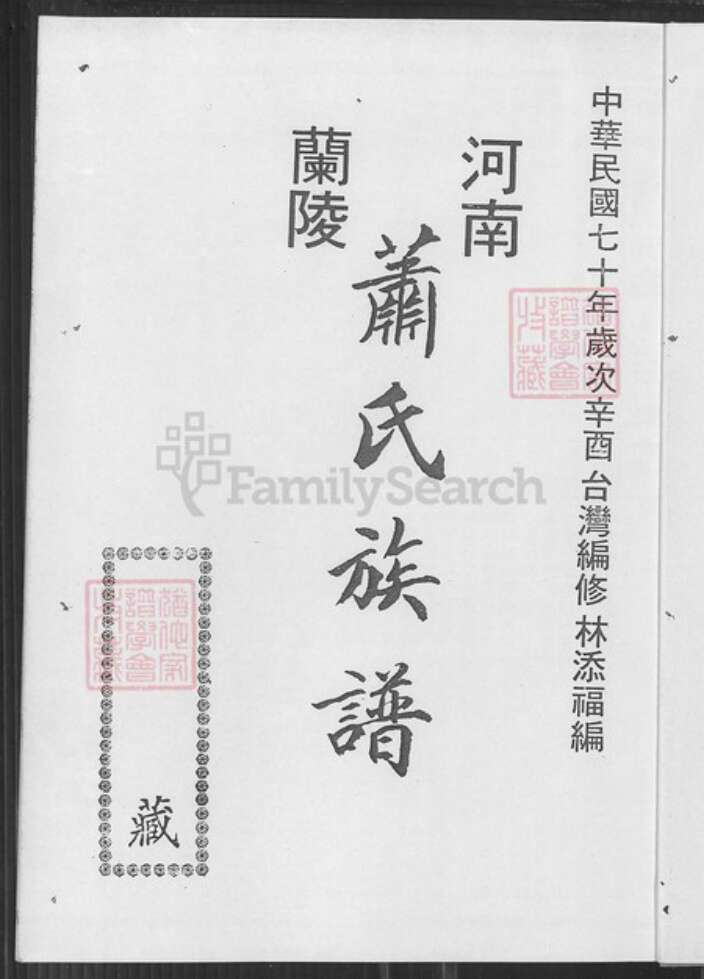 中華民國七十年歲次辛酉台灣編修 林添福編
河南
蘭陵
蕭氏族譜
藏
猶他家譜學會收藏
猶他家譜學會收藏
FamilySearch